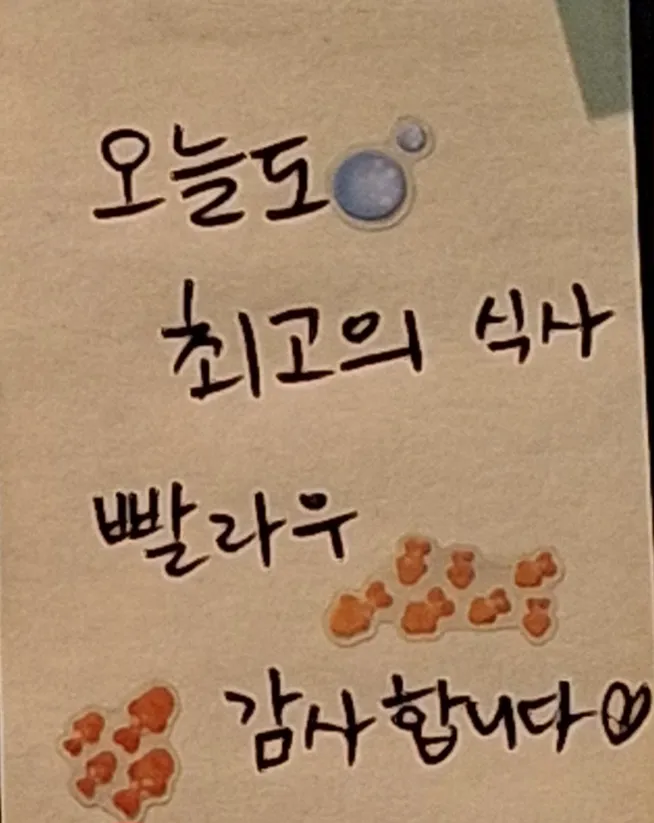 오늘도
최고의 식사
빨라우
감사합니다♡